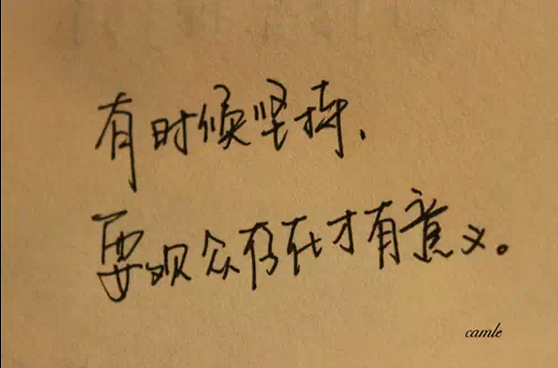 有时候坚持、
要观众存在才有意义。
camle